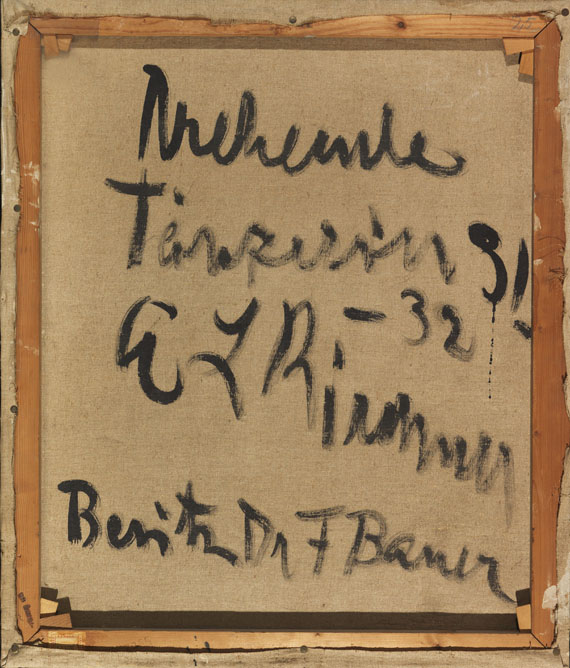 Drehende
Tänzerin 31
- 32
E L Kirchner
Besitz Dr F Bauer